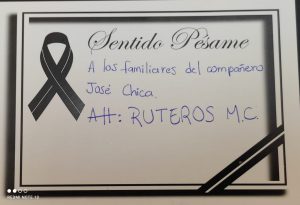 Sentido Pésame
A los familiares del compañero
José Chica.
Att: RUTEROS M.C.
REDMI NOTE 10